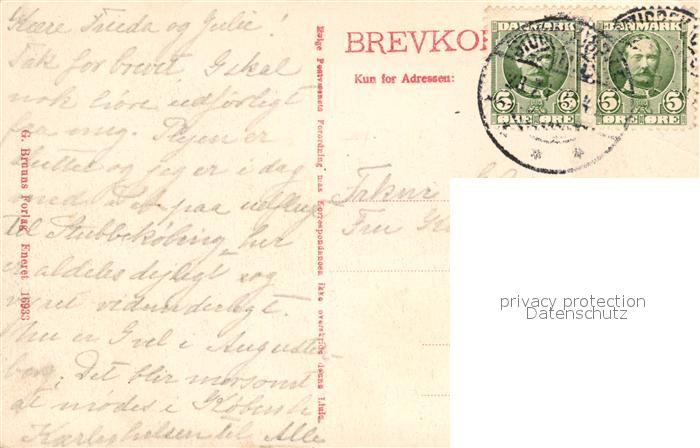 Kære Frieda og Julie!
Tak for brevet I skal
nok høre udførligt
fra mig. Plejen er
sluttet og jeg er i dag
med paa udflugt
til Stubbekøbing, her
er aldeles dejligt og
vejret vidunderligt.
Nu er I vel i Augusten
borg. Det blir morsomt
at mødes i Københ
Kærlig hilsen til Alle
G. Bruuns Forlag Eneret 16933
Ifølge Postvæsenets Forordning maa Korrespondancen ikke overskride denne Linie.
BREVKOR
Kun for Adressen:
DANMARK
5 5
ØRE ØRE
DANMARK
5 5
ØRE ØRE
Fru
privacy protection
Datenschutz